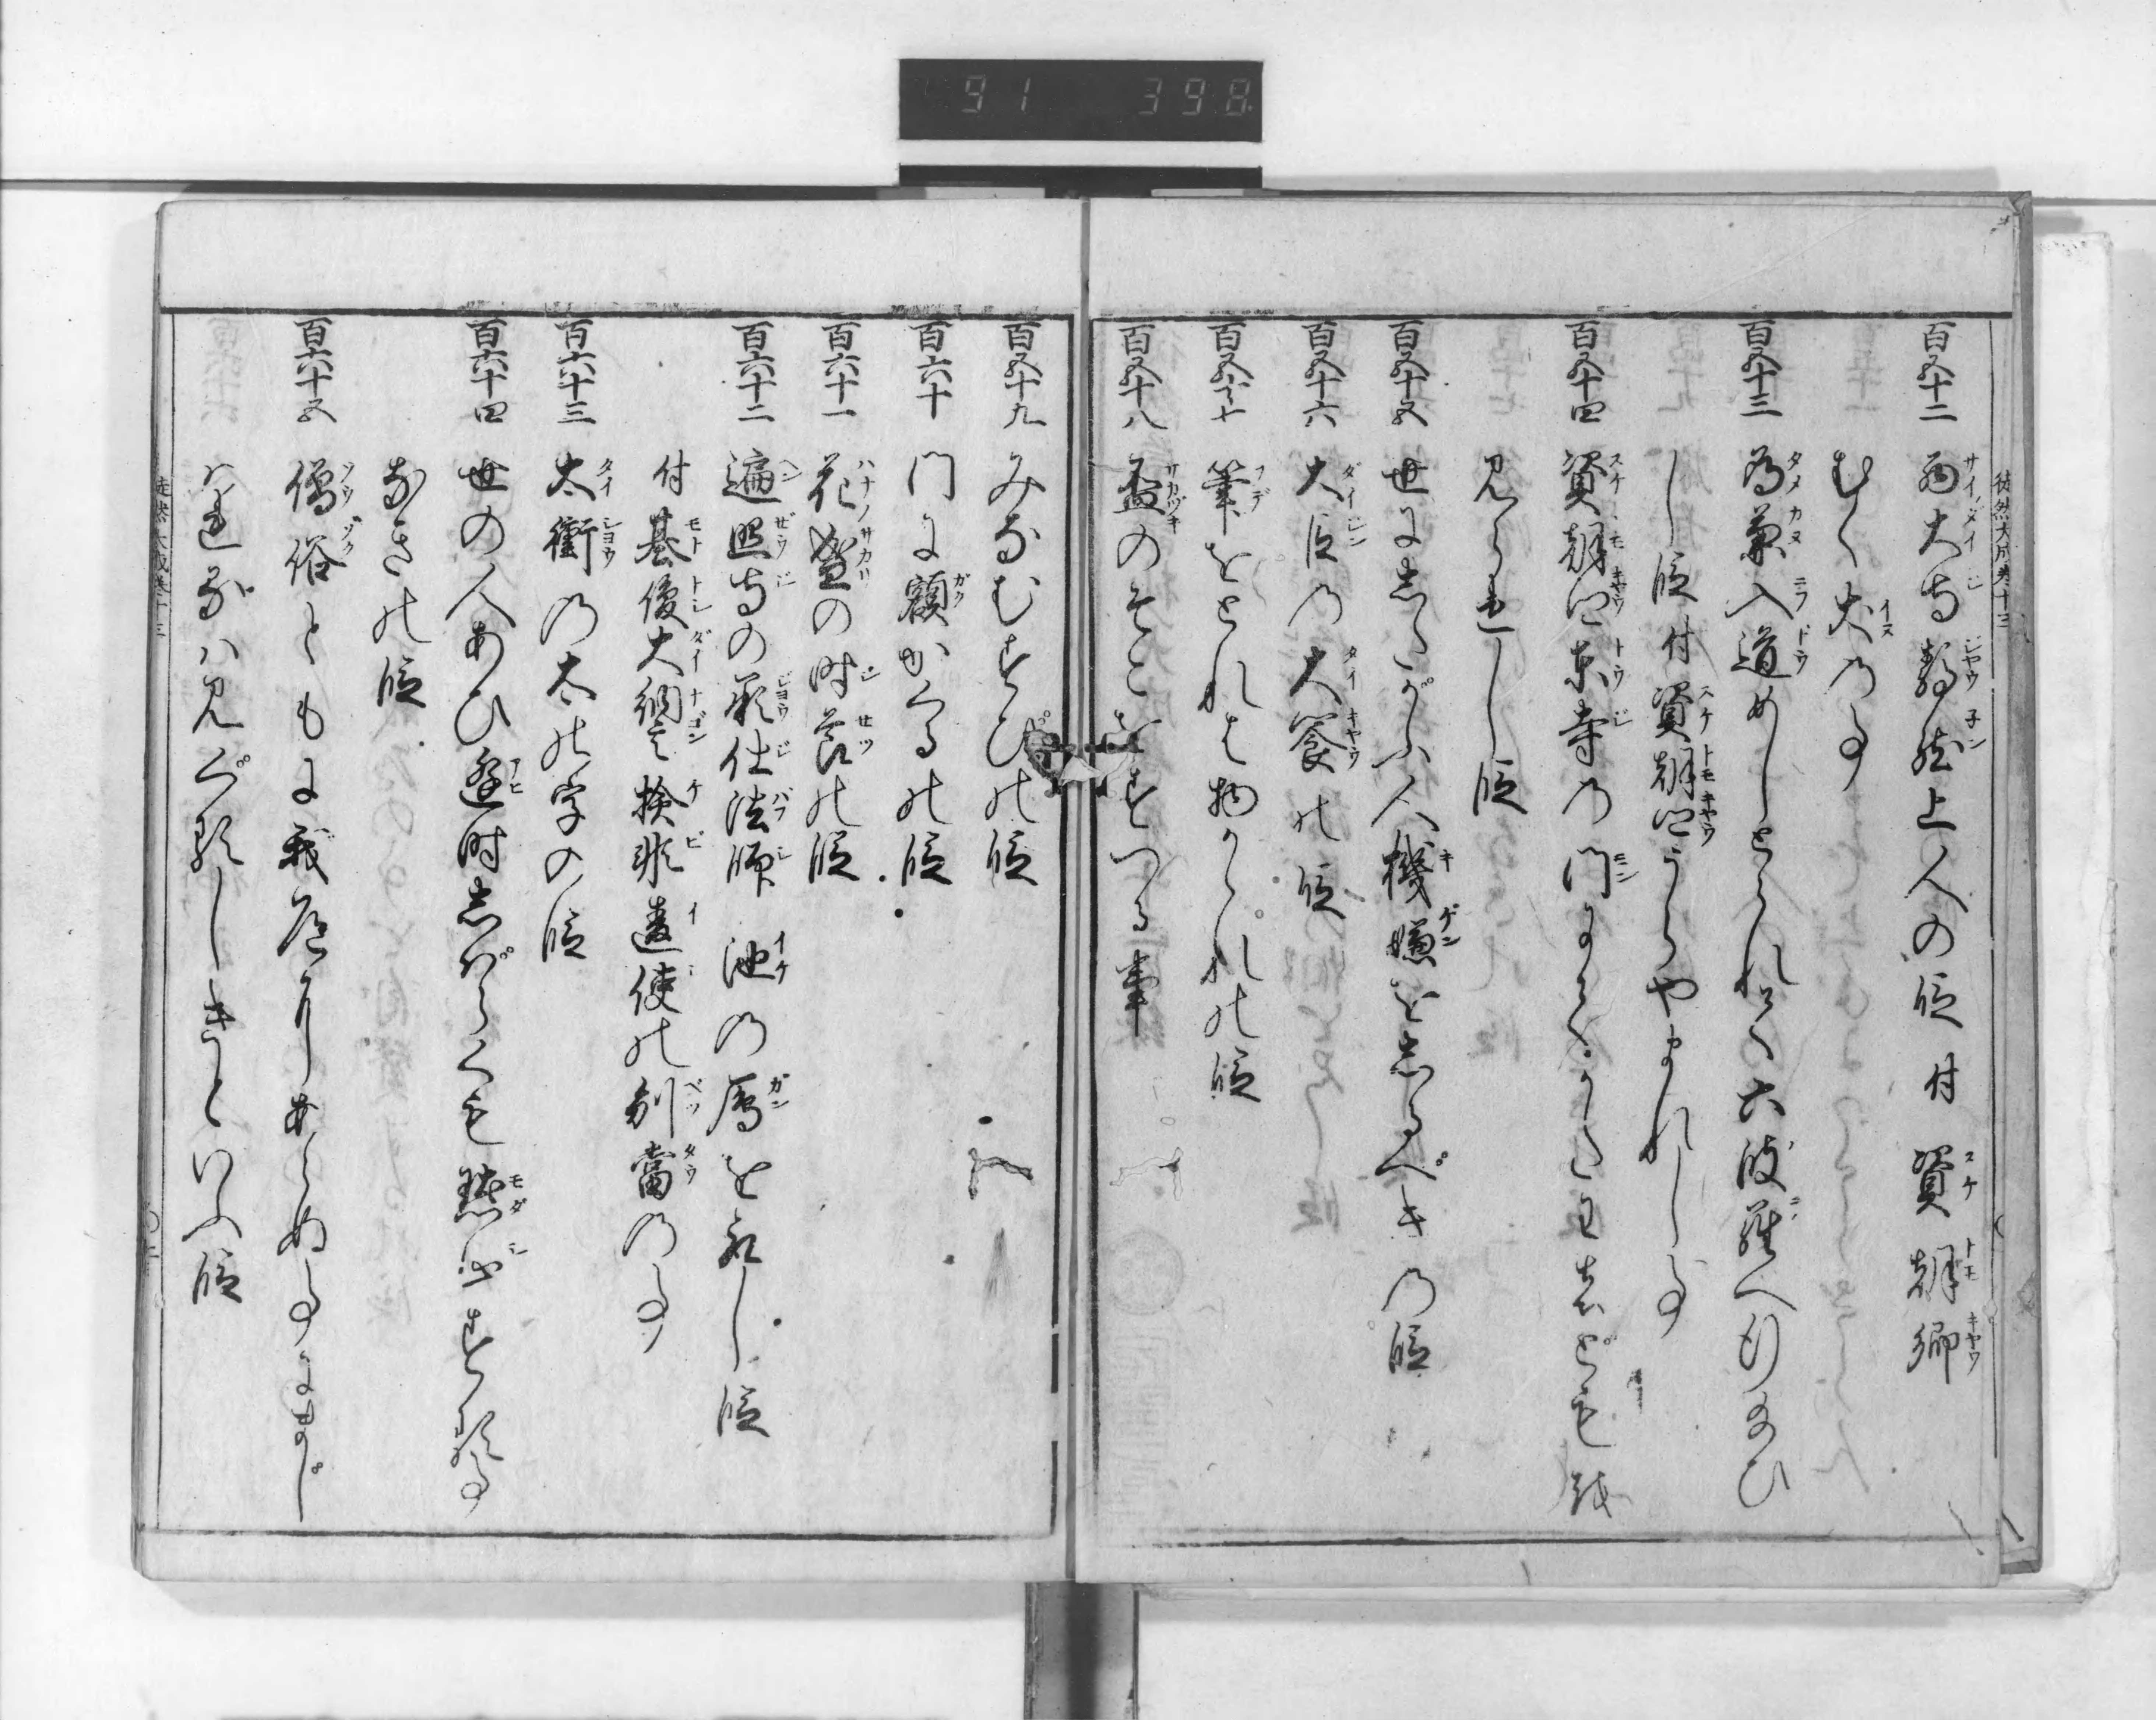 91 398
徒然大成巻十三
百五十二 西大寺静然上人の段 付 資朝卿
むく犬の事
百五十三 為兼入道めしとられて六波羅へ行給ひ
し段 付 資朝卿うらやまれし事
百五十四 資朝卿東寺の門にてかたわものども
見られし段
百五十五 世にしたがふ人機嫌をしるべきの段
百五十六 大臣の大饗の段
百五十七 筆をとれば物かゝれの段
百五十八 盃のそこをすつる事
百五十九 みなむすびの段
百六十 門に額かくるの段
百六十一 花盛の時節の段
百六十二 遍照寺の承仕法師 池の鳥を殺し段
付 基俊大納言検非違使の別当の事
百六十三 太衝の太の字の段
百六十四 世の人あひ逢時しばらくも黙止する事
なきの段
百六十五 僧俗ともに我道にあらぬ事にまじ
はるは見ぐるしきといふ段
徒然大成巻十三